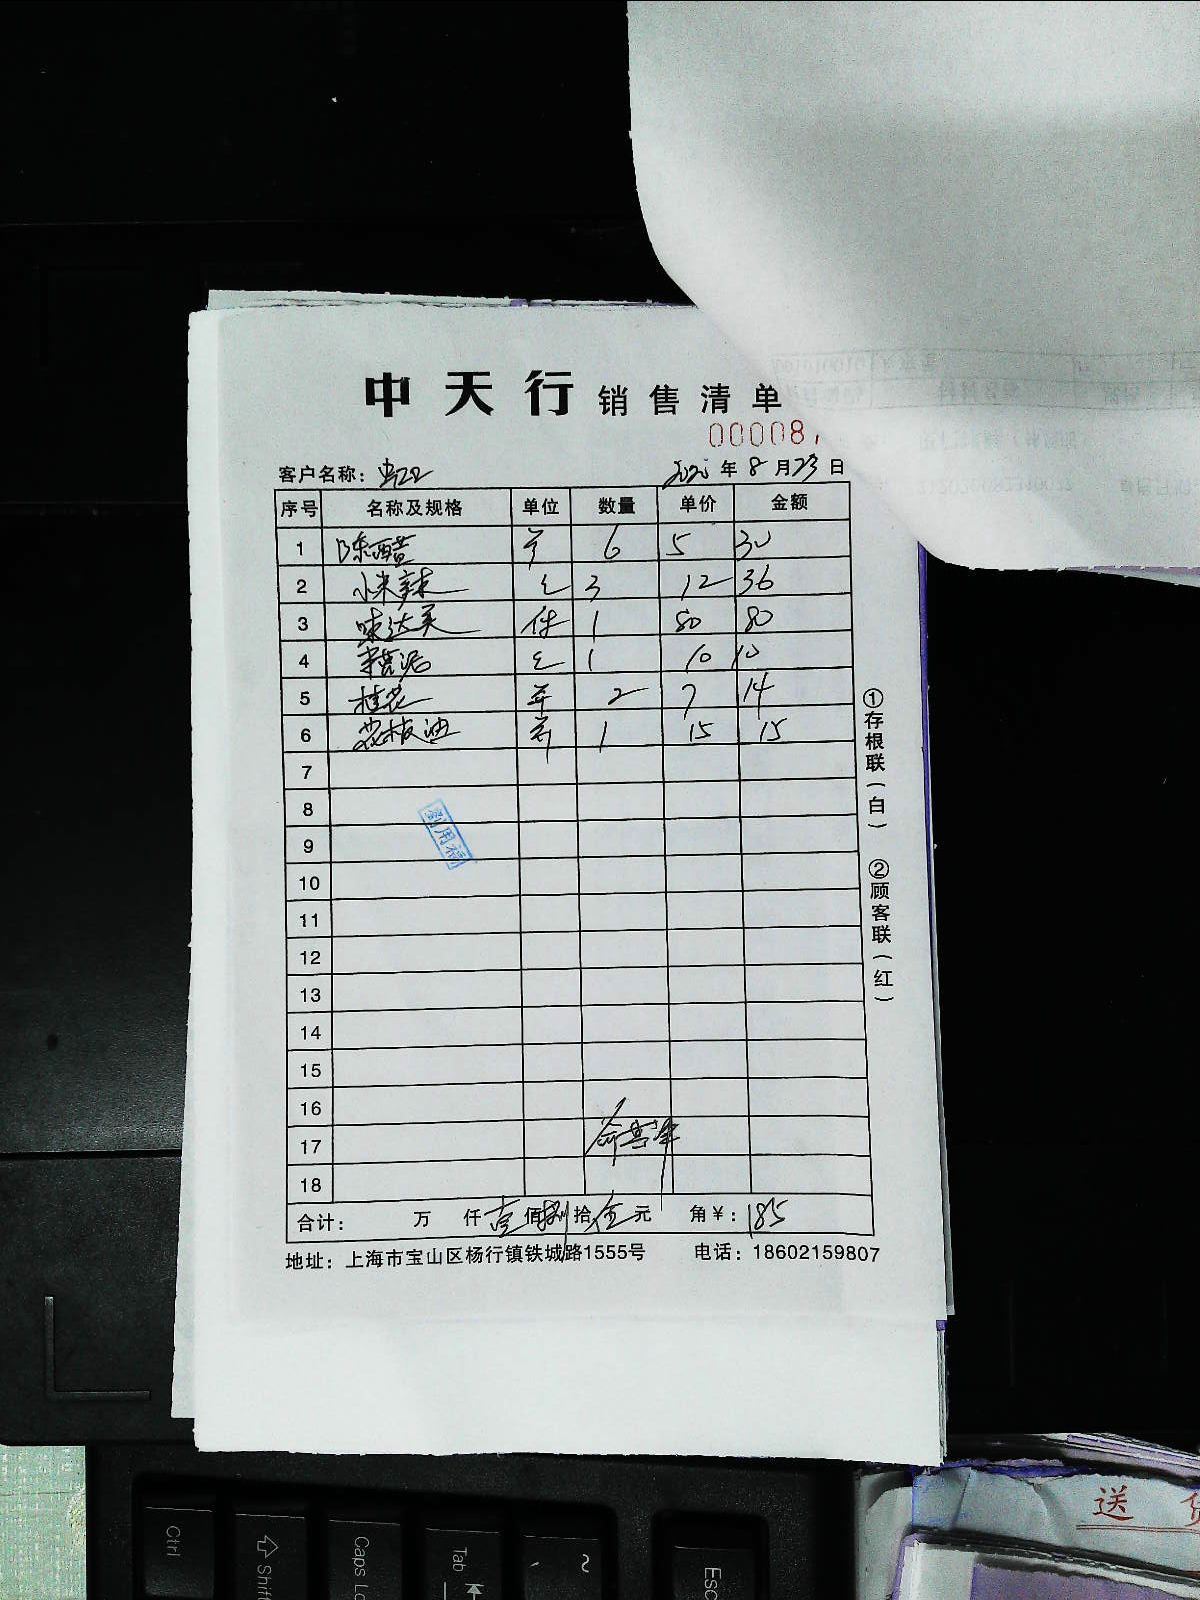 中天行 销售清单
000087
客户名称： 年 8 月 23 日
序号 名称及规格 单位 数量 单价 金额
1 陈醋 6 5 30
2 小米辣 3 12 36
3 味达美 件 1 80 80
4 1 10 10
5 桂花 2 7 14
6 1 15 15
7
8
9
10
11
12
13
14
15
16
17
18
合计： 万 仟 壹 佰 捌 拾 元 角 ¥：185
地址：上海市宝山区杨行镇铁城路1555号 电话：18602159807
①存根联（白） ②顾客联（红）
送
Ctrl
Shift
Caps
Tab
~
Esc